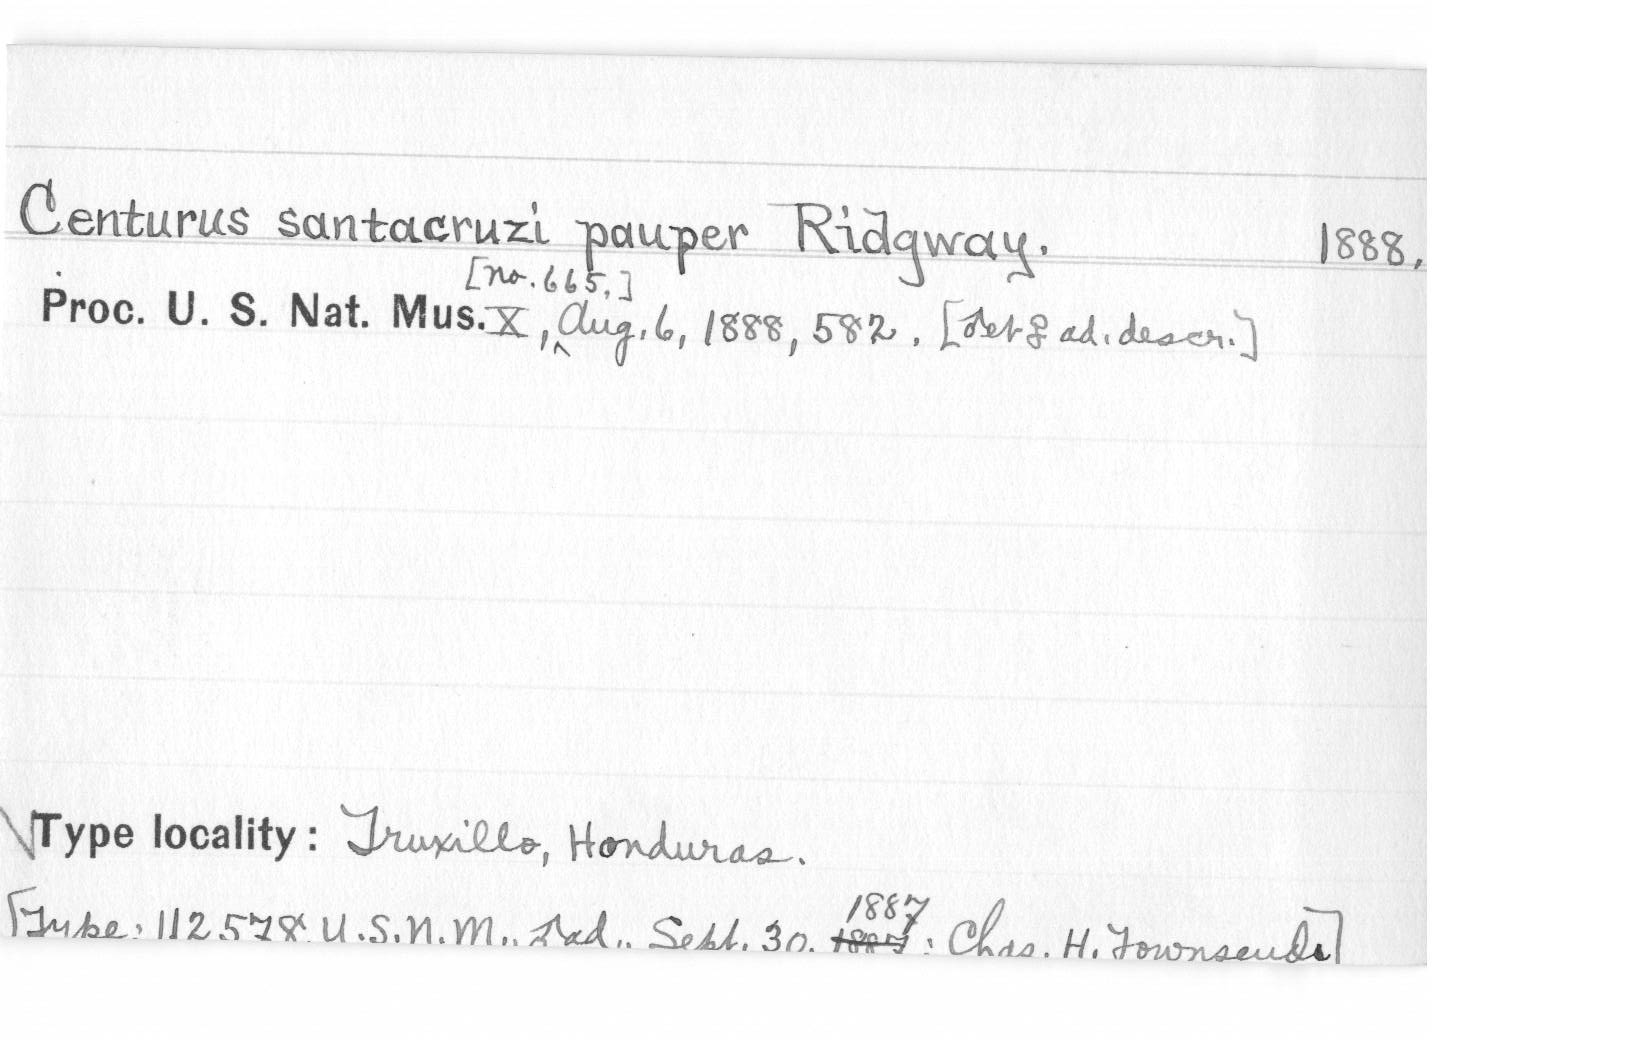 Centurus santacruzi pauper Ridgway. 1888.
[no. 665.]
Proc. U. S. Nat. Mus. X, ^ Aug. 6, 1888, 582. [♂et♀ ad. descr.]
Type locality: Truxillo, Honduras.
1887
[Type: 112578 U.S.N.M., ad., Sept. 30, : Chas. H. Townsend.]